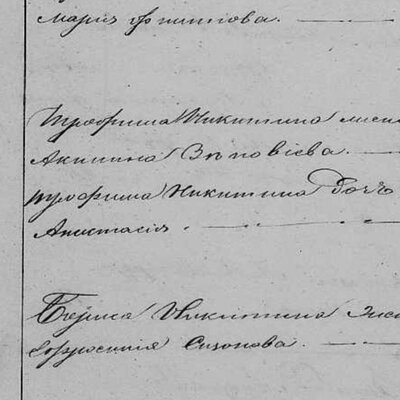 Марія Филипова.
Трофима Никитина жена
Акилина Зѣновіева.
Трофима Никитина дочь
Анастасія.
Бориса Никитина жена
Ефросинія Сизонова.